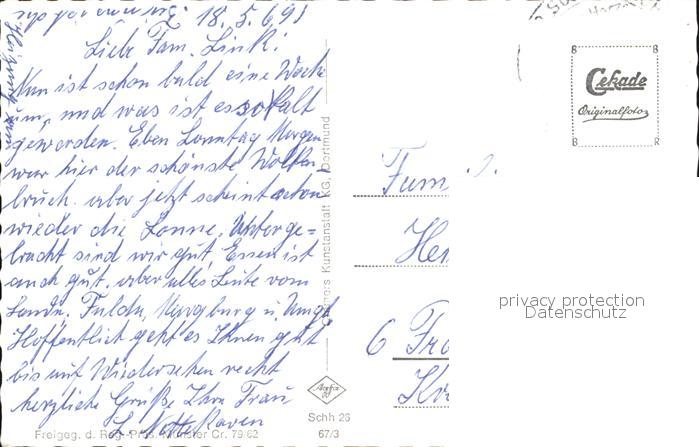 18.5.69
Liebe Fam. Link!
Nun ist schon bald eine Woche
um, und was ist es so kalt
geworden. Eben Sonntag Morgen
war hier der schönste Wolken-
bruch. aber jetzt scheint schon
wieder die Sonne. Unterge=
bracht sind wir gut, Essen ist
auch gut. aber alles Leute vom
Lande. Fulda, u. Umgd
Hoffentlich geht es Ihnen gut
bis auf Wiedersehen recht
herzliche Grüße Ihre Frau
Freigeg. d. Reg.-Präs. Münster Cr. 79/62
Kunstanstalt KG. Dortmund
Agfa
Schh 26
67/3
Cekade
Originalfoto
Fam
6 Fra
privacy protection
Datenschutz